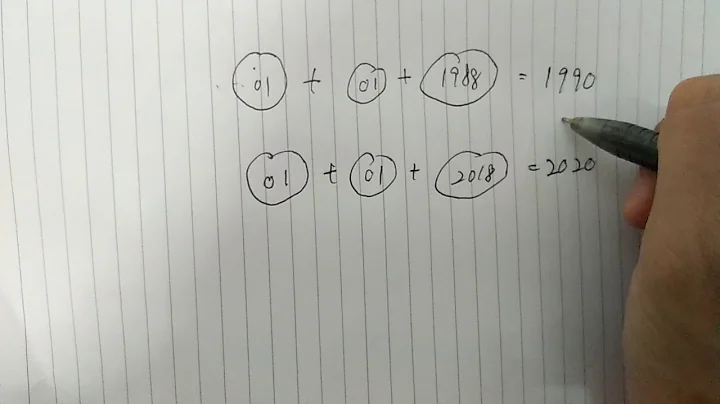 01 + 01 + 1988 = 1990
01 + 01 + 2018 = 2020